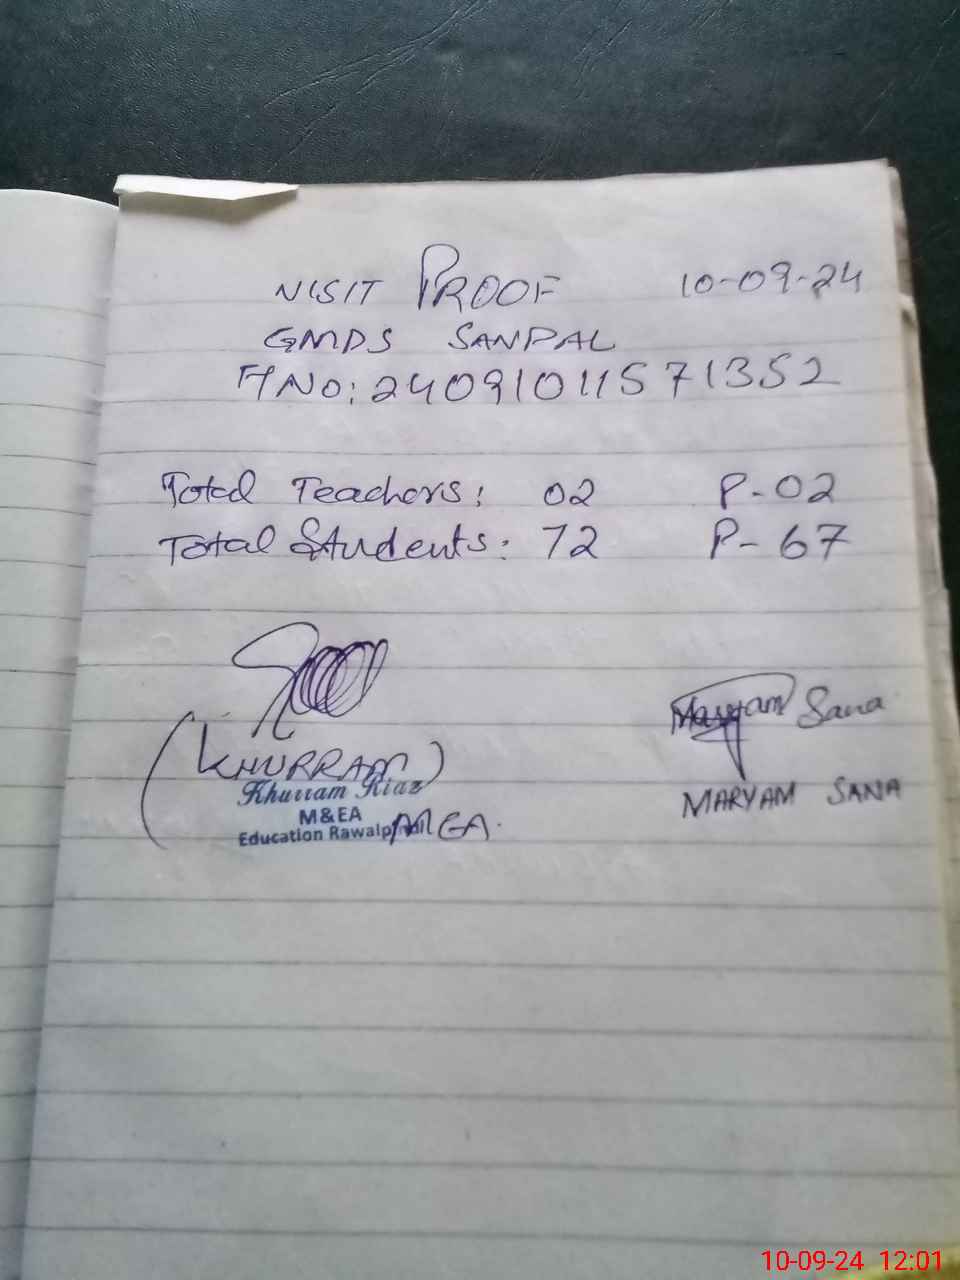 VISIT PROOF 10-09-24
GMPS SANPAL
F/NO: 24091011571352
Total Teachers: 02 P-02
Total Students: 72 P-67
Maryam Sana
(KHURRAM)
Khurram Riaz
MARYAM SANA
M&EA
Education Rawalpindi MEA.
10-09-24 12:01